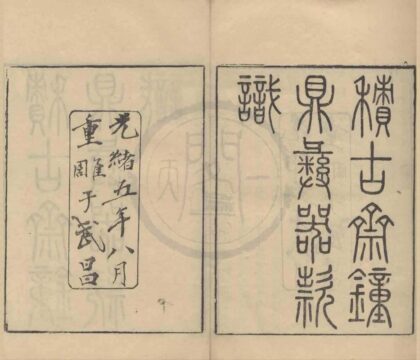 積古齋鐘
鼎彝器款
識
光緒五年八月
重雕于武昌